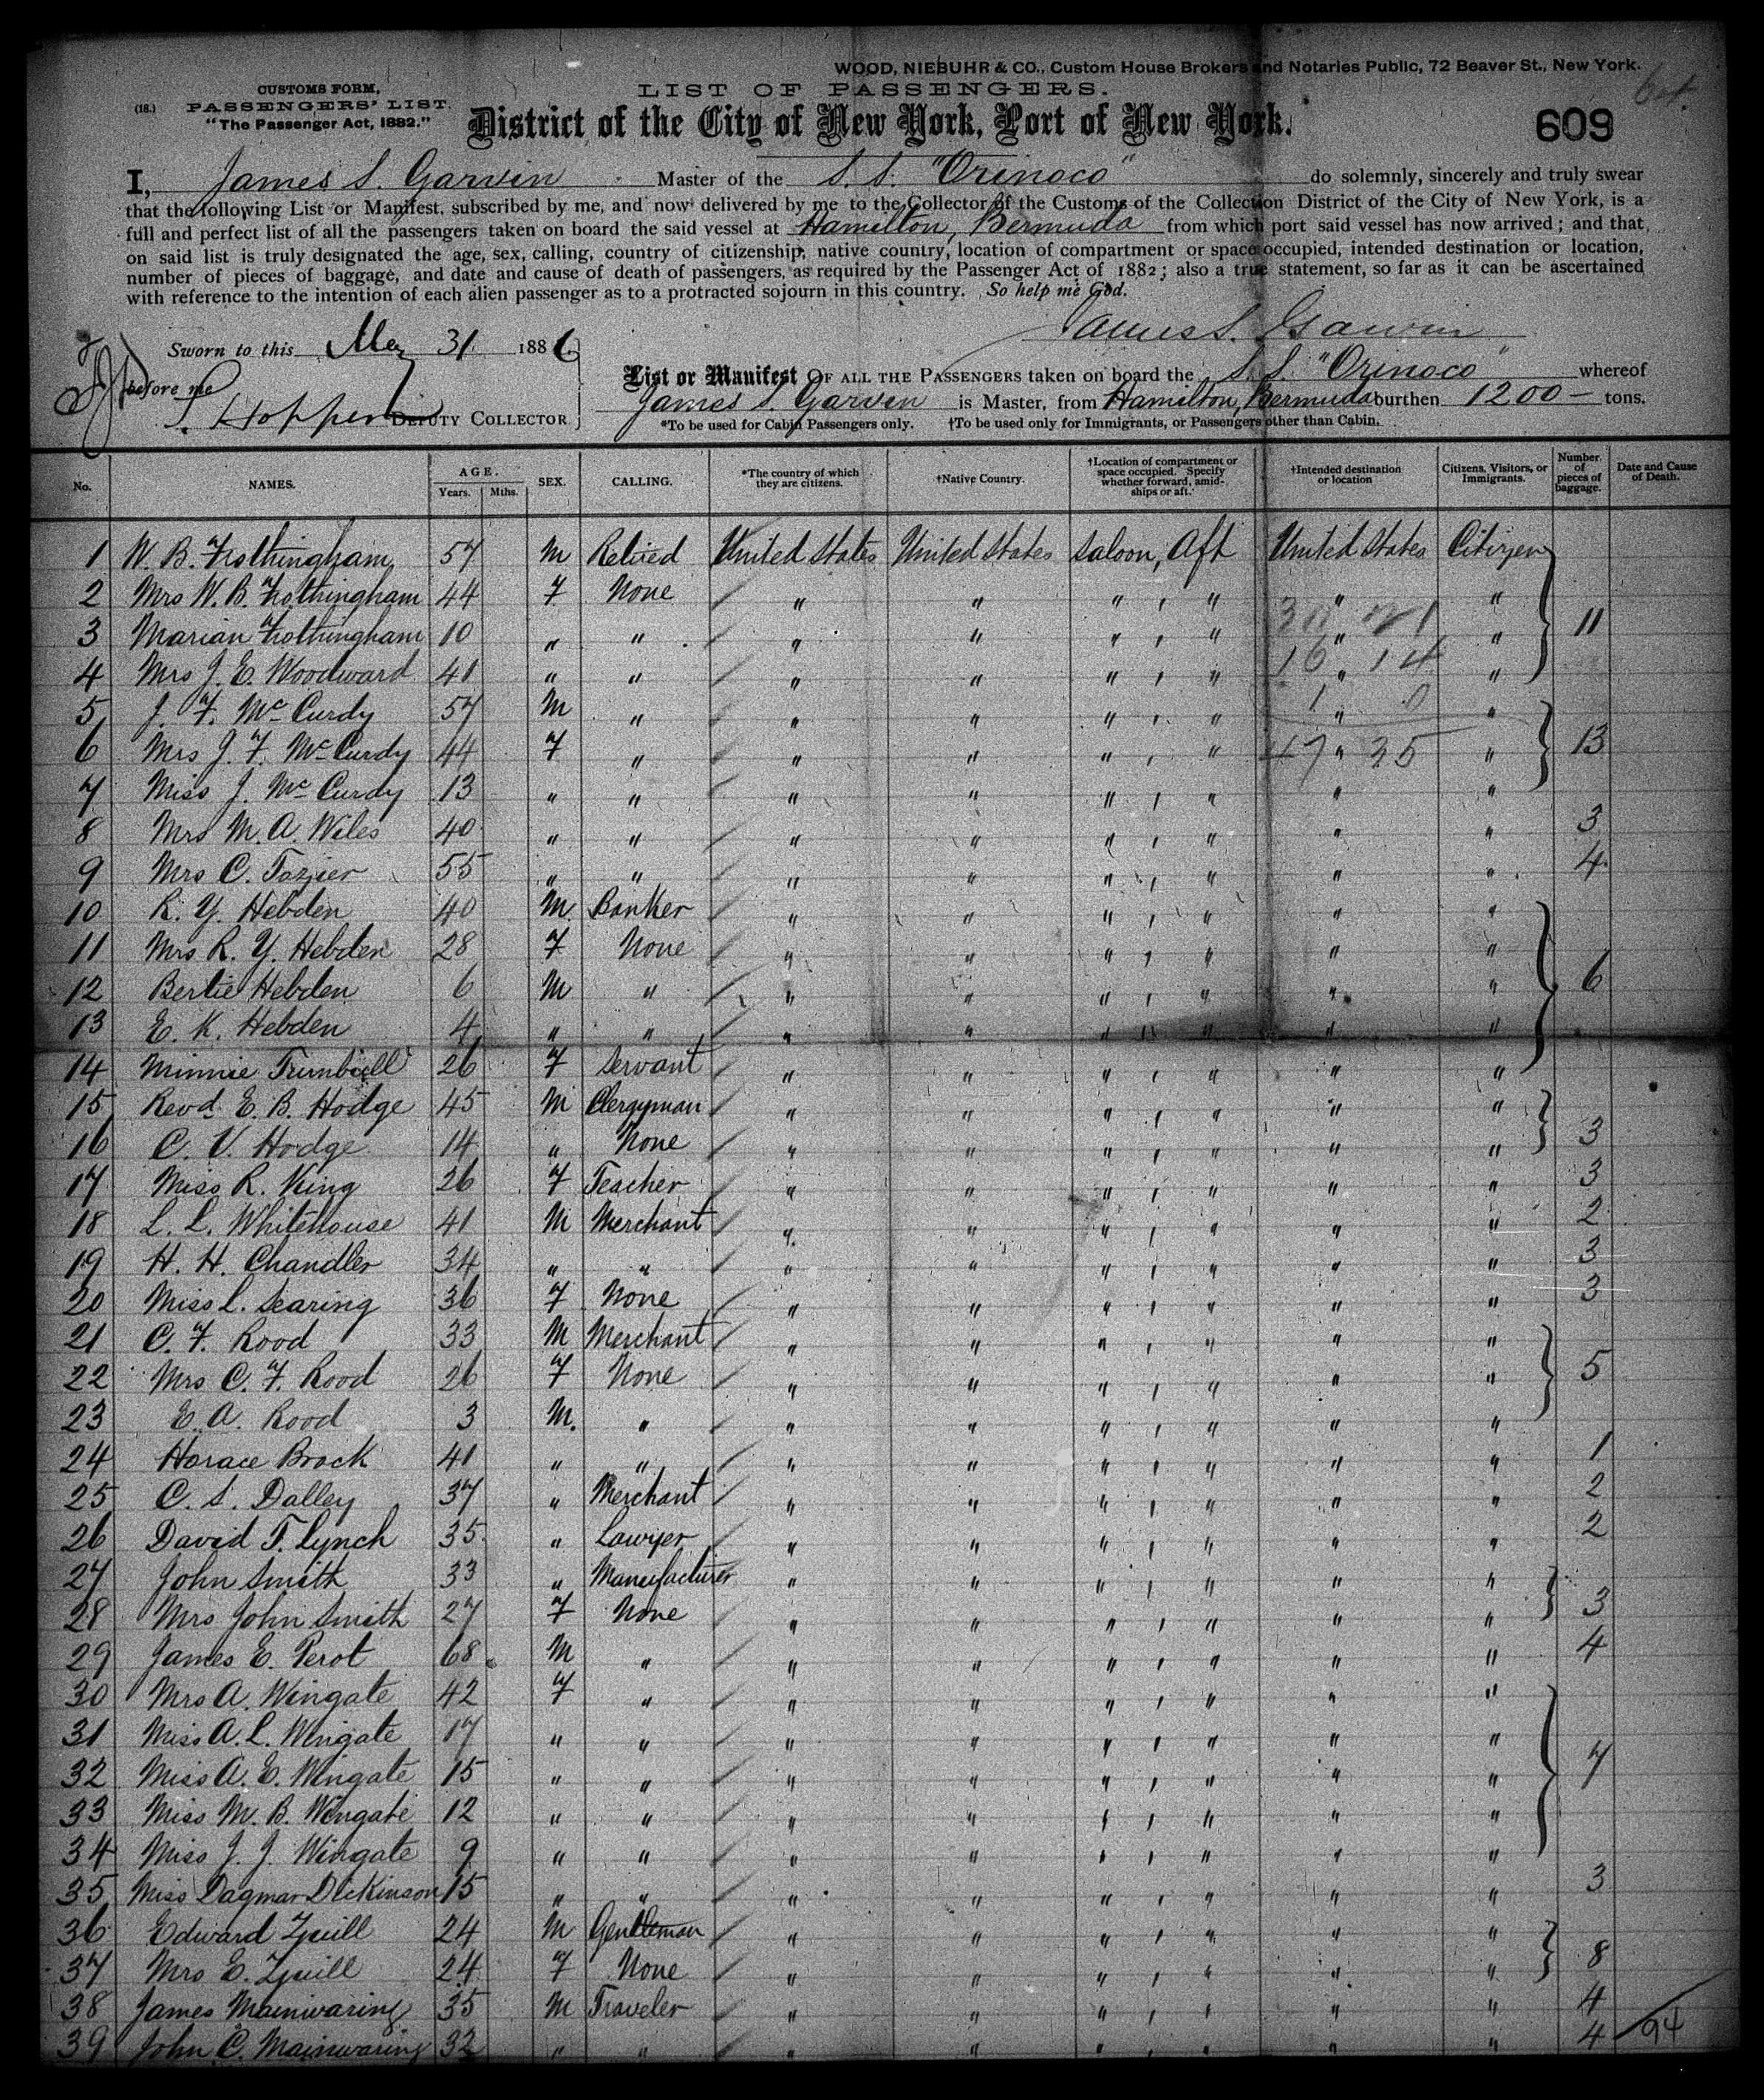 WOOD, NIEBUHR & CO., Custom House Brokers and Notaries Public, 72 Beaver St., New York.
CUSTOMS FORM,
(18.) PASSENGERS' LIST.
"The Passenger Act, 1882."
LIST OF PASSENGERS.
District of the City of New York, Port of New York.
609
I, James S. Garvin Master of the S. S. "Orinoco" do solemnly, sincerely and truly swear
that the following List or Manifest, subscribed by me, and now delivered by me to the Collector of the Customs of the Collection District of the City of New York, is a
full and perfect list of all the passengers taken on board the said vessel at Hamilton, Bermuda from which port said vessel has now arrived; and that
on said list is truly designated the age, sex, calling, country of citizenship, native country, location of compartment or space occupied, intended destination or location,
number of pieces of baggage, and date and cause of death of passengers, as required by the Passenger Act of 1882; also a true statement, so far as it can be ascertained
with reference to the intention of each alien passenger as to a protracted sojourn in this country. So help me God.
James S. Garvin
Sworn to this May 31 1886
before me
Hopper DEPUTY COLLECTOR
List or Manifest OF ALL THE PASSENGERS taken on board the S. S. "Orinoco" whereof
James S. Garvin is Master, from Hamilton, Bermuda burthen 1200 — tons.
*To be used for Cabin Passengers only. †To be used only for Immigrants, or Passengers other than Cabin.
No. NAMES. AGE. Years. Mths. SEX. CALLING. *The country of which they are citizens. †Native Country. †Location of compartment or space occupied. Specify whether forward, amidships or aft. †Intended destination or location Citizens, Visitors, or Immigrants. Number of pieces of baggage. Date and Cause of Death.
1 W. B. Frothingham 57 M Retired United States United States Saloon, Aft United States Citizen
2 Mrs W. B. Frothingham 44 F None " " " , " " "
3 Marian Frothingham 10 " " " " " , " " " 11
4 Mrs J. E. Woodward 41 " " " " " , " " "
5 J. F. McCurdy 57 M " " " " , " " "
6 Mrs J. F. McCurdy 44 F " " " " , " " " 13
7 Miss J. McCurdy 13 " " " " " , " " "
8 Mrs M. A. Wiles 40 " " " " " , " " " 3
9 Mrs C. Tozier 55 " " " " " , " " " 4
10 R. Y. Hebden 40 M Banker " " " , " " "
11 Mrs R. Y. Hebden 28 F None " " " , " " "
12 Bertie Hebden 6 M " " " " , " " " 6
13 E. K. Hebden 4 " " " " " , " " "
14 Minnie Turnbull 26 F Servant " " " , " " "
15 Revd. E. B. Hodge 45 M Clergyman " " " , " " "
16 C. V. Hodge 14 " None " " " , " " " 3
17 Miss R. King 26 F Teacher " " " , " " " 3
18 L. L. Whitehouse 41 M Merchant " " " , " " " 2
19 H. H. Chandler 34 " " " " " , " " " 3
20 Miss L. Searing 36 F None " " " , " " " 3
21 C. F. Rood 33 M Merchant " " " , " " "
22 Mrs C. F. Rood 26 F None " " " , " " " 5
23 E. A. Rood 3 M. " " " " , " " "
24 Horace Brock 41 " " " " " , " " " 1
25 C. S. Dalley 37 " Merchant " " " , " " " 2
26 David T. Lynch 35 " Lawyer " " " , " " " 2
27 John Smith 33 " Manufacturer " " " , " " "
28 Mrs John Smith 27 F None " " " , " " " 3
29 James E. Perot 68 M " " " " , " " " 4
30 Mrs A. Wingate 42 F " " " " , " " "
31 Miss A. L. Wingate 17 " " " " " , " " "
32 Miss A. E. Wingate 15 " " " " " , " " " 7
33 Miss M. B. Wingate 12 " " " " " , " " "
34 Miss J. J. Wingate 9 " " " " " , " " "
35 Miss Dagmar Dickinson 15 " " " " " , " " " 3
36 Edward 24 M Gentleman " " " , " " "
37 Mrs E. 24 F None " " " , " " " 8
38 James Mainwaring 35 M Traveler " " " , " " " 4
39 John C. Mainwaring 32 " " " " " , " " " 4 94